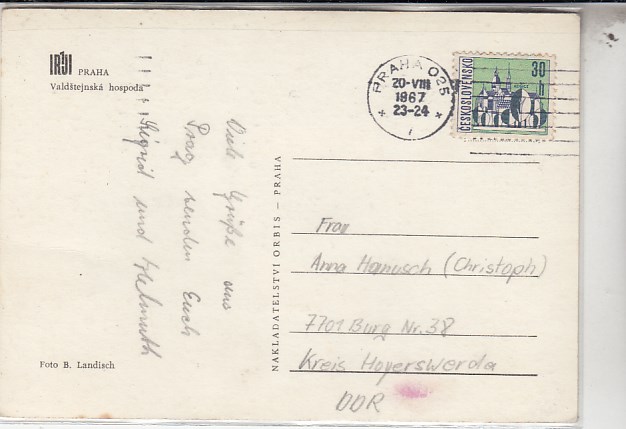 PRAHA
Valdštejnská hospoda
Viele Grüße aus
Prag senden Euch
Sigrid und Helmuth
Foto B. Landisch
NAKLADATELSTVÍ ORBIS – PRAHA
PRAHA 025
20-VIII
1967
23-24
ČESKOSLOVENSKO
30
h
Frau
Anna Hanusch (Christoph)
7701 Burg Nr. 38
Kreis Hoyerswerda
DDR